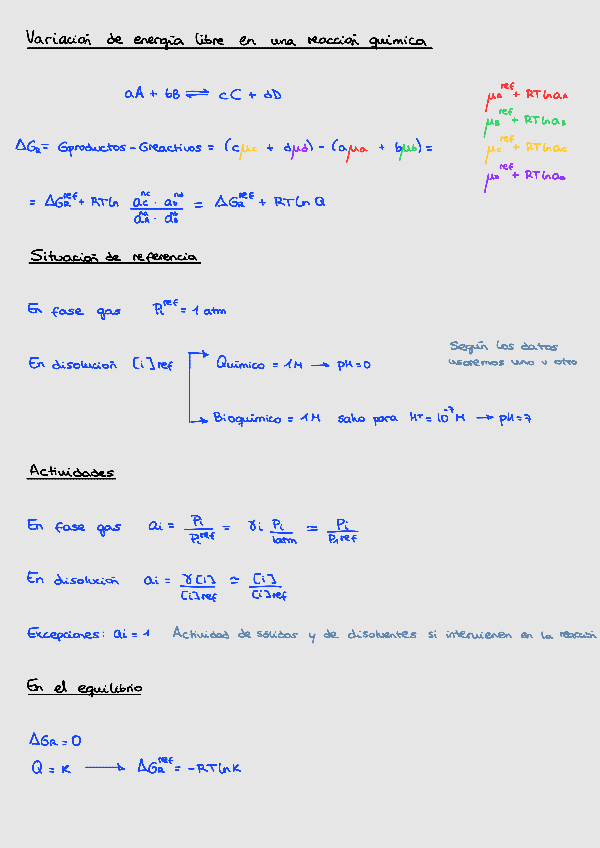 Variación de energía libre en una reacción química
aA + bB ⇌ cC + dD
μA^ref + RT ln aA
μB^ref + RT ln aB
μC^ref + RT ln aC
μD^ref + RT ln aD
ΔGR = Gproductos - Greactivos = (cμc + dμd) - (aμa + bμb) =
= ΔGR^ref + RT ln (aC^nc · aD^nd)/(aA^na · aB^nb) = ΔGR^ref + RT ln Q
Situación de referencia
En fase gas Pi^ref = 1 atm
Según los datos
usaremos uno u otro
En disolución [i]ref → Químico = 1M → pH=0
→ Bioquímico = 1M salvo para H+ = 10^-7 M → pH=7
Actividades
En fase gas ai = Pi/Pi^ref = γi Pi/1atm ≃ Pi/Pi^ref
En disolución ai = γ[i]/[i]ref ≃ [i]/[i]ref
Excepciones: ai = 1 Actividad de sólidos y de disolventes si intervienen en la reacción
En el equilibrio
ΔGR = 0
Q = K → ΔGR^ref = -RT ln K